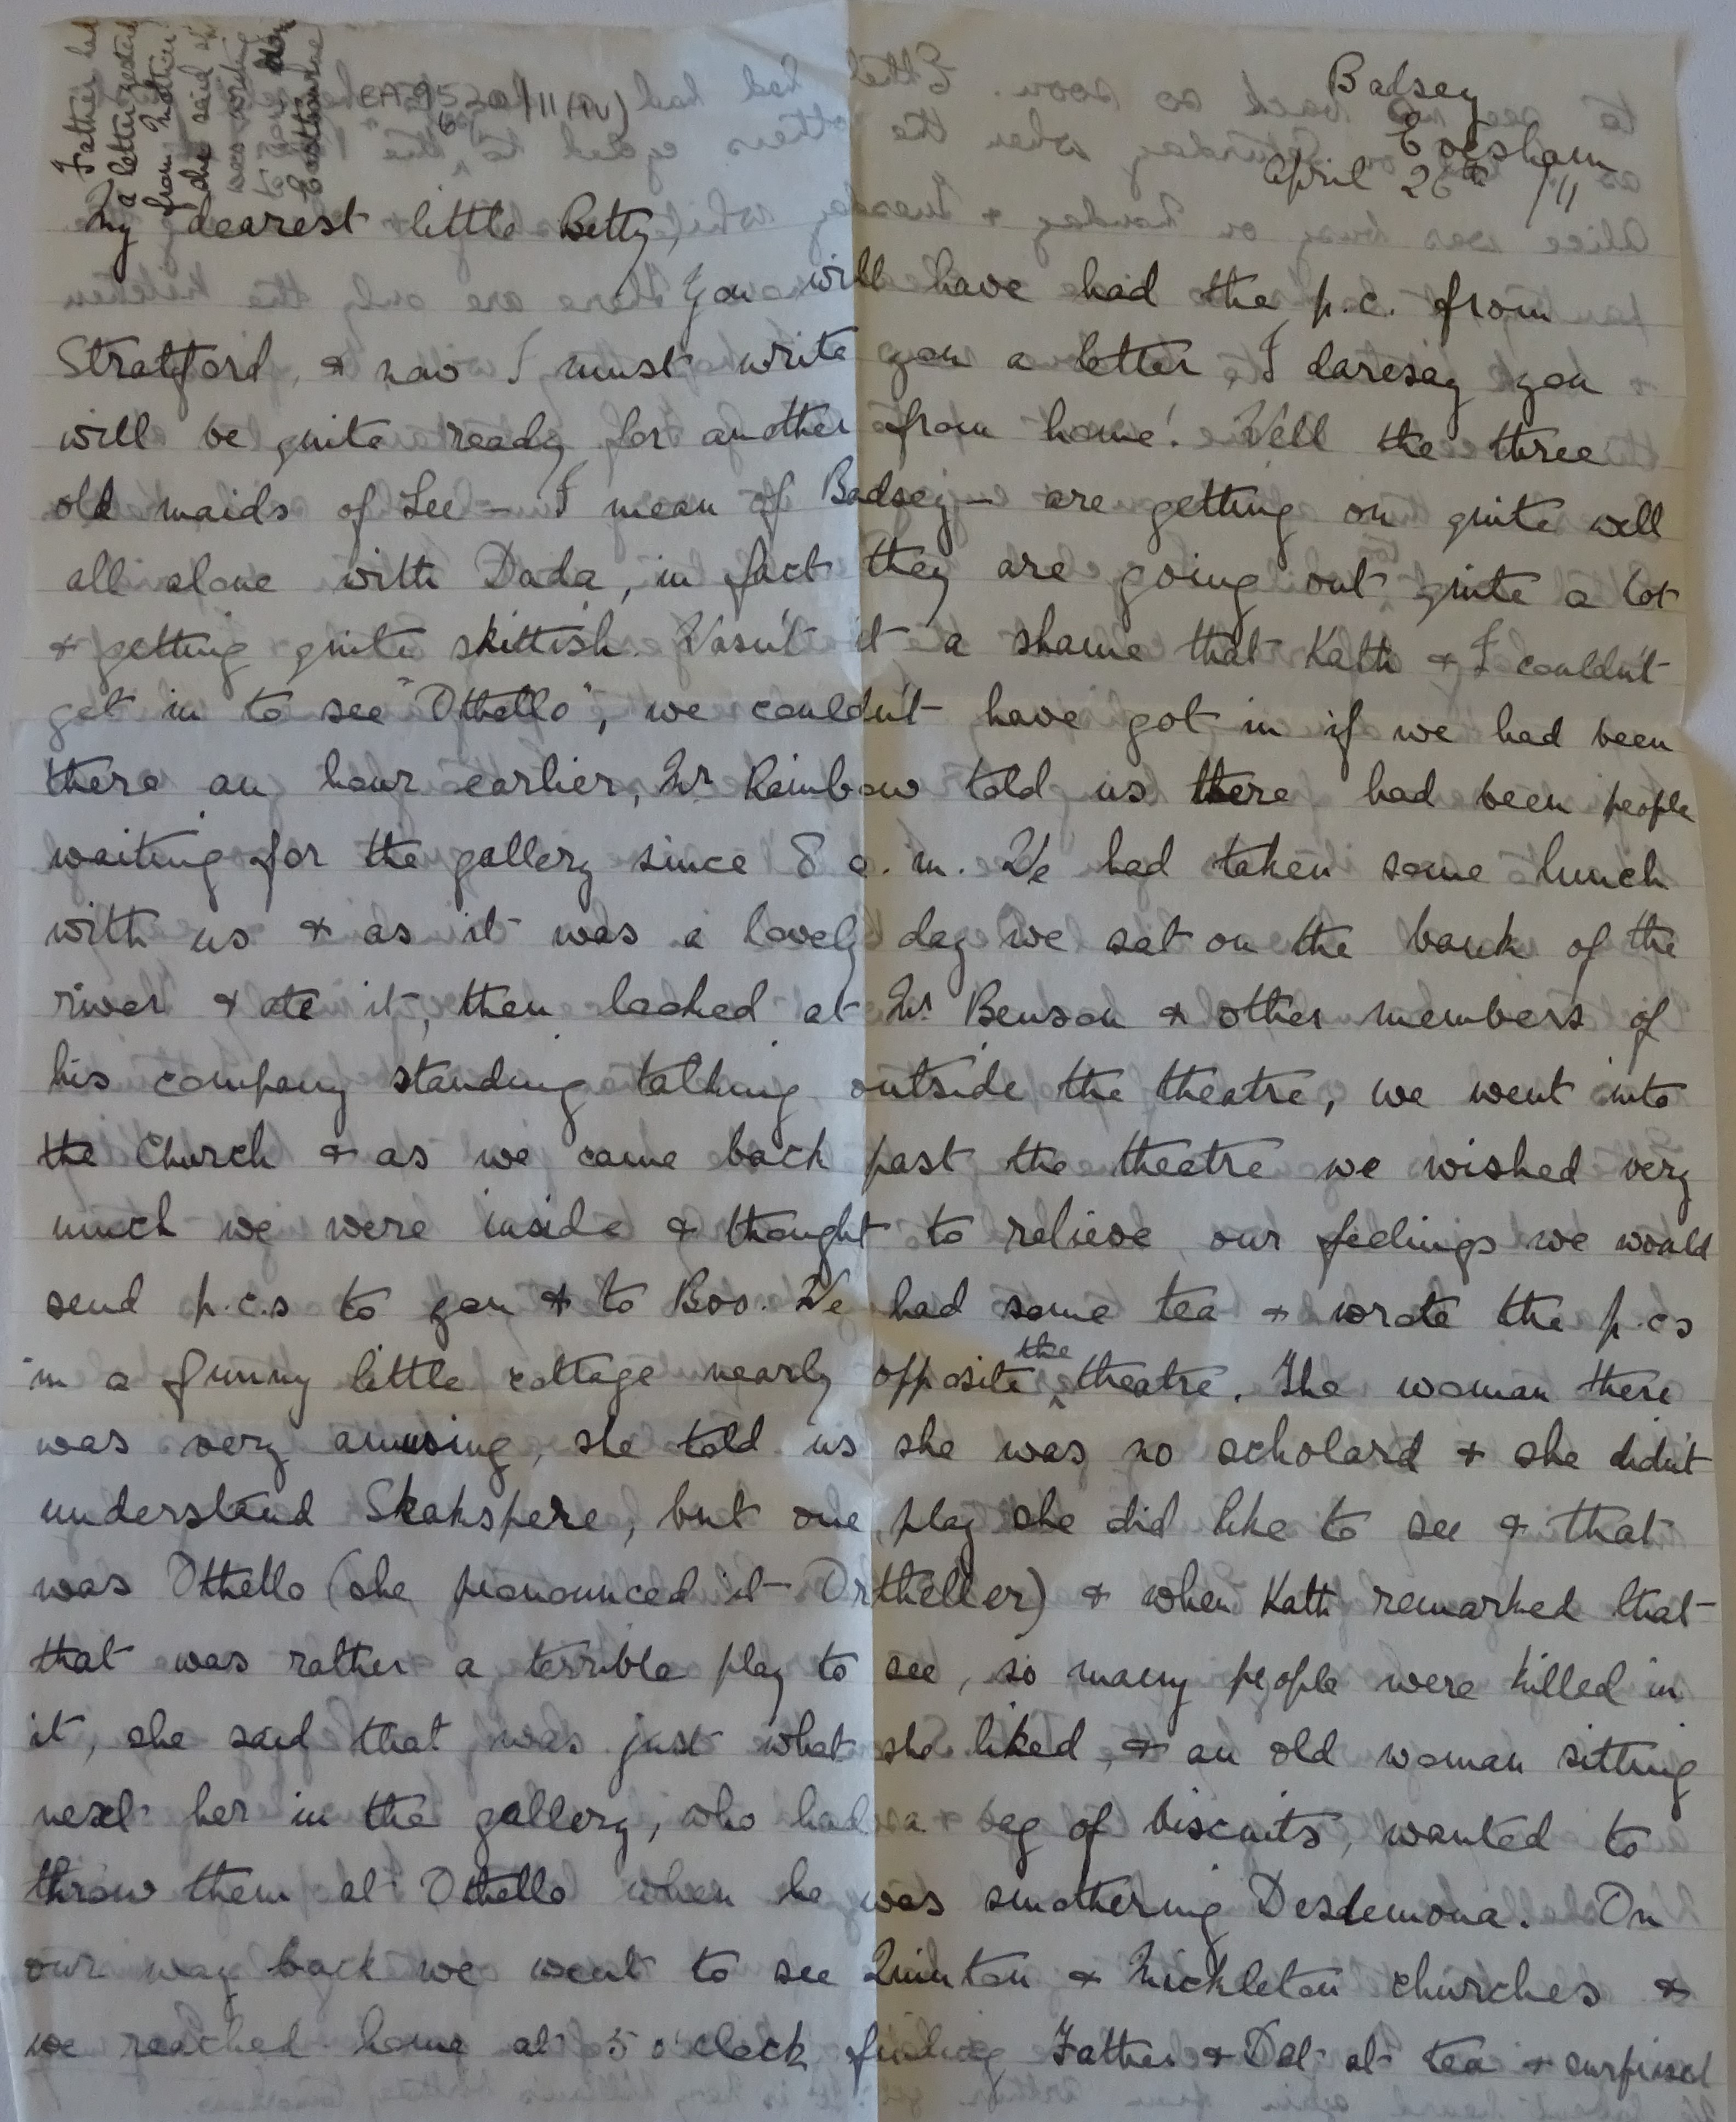 Badsey
Evesham
April 26th /11
Father had
a letter yesterday
from Mother
she said she
was writing
to
Eastbourne
My dearest little Betty,
You will have had the p.c. from
Stratford, & now I must write you a letter, I daresay you
will be quite ready for another from home! Well the three
old maids of Lee – I mean of Badsey – are getting on quite well
all alone with Dada, in fact they are going out quite a lot
& getting quite skittish. Wasn't it a shame that Kath & I couldn't
get in to see "Othello", we couldn't have got in if we had been
there an hour earlier, Mr Rainbow told us there had been people
waiting for the gallery since 8 a.m. We had taken some lunch
with us & as it was a lovely day we sat on the bank of the
river & ate it, then looked at Mr Benson & other members of
his company standing talking outside the theatre, we went into
the Church & as we came back past the theatre we wished very
much we were inside & thought to relieve our feelings we would
send p.c.s to you & to Boo. We had some tea & wrote the p.cs
in a funny little cottage nearly opposite the theatre. The woman there
was very amusing, she told us she was no scholard & she didn't
understand Shakspere, but one play she did like to see & that
was Othello (she pronounced it Ortheller) & when Kath remarked that
that was rather a terrible play to see, so many people were killed in
it, she said that was just what she liked, & an old woman sitting
next her in the gallery, who had a bag of biscuits, wanted to
throw them at Othello when he was smothering Desdemona. On
our way back we went to see Quinton & Mickleton churches &
we reached home at 5 o'clock finding Father & Dot at tea & surprised